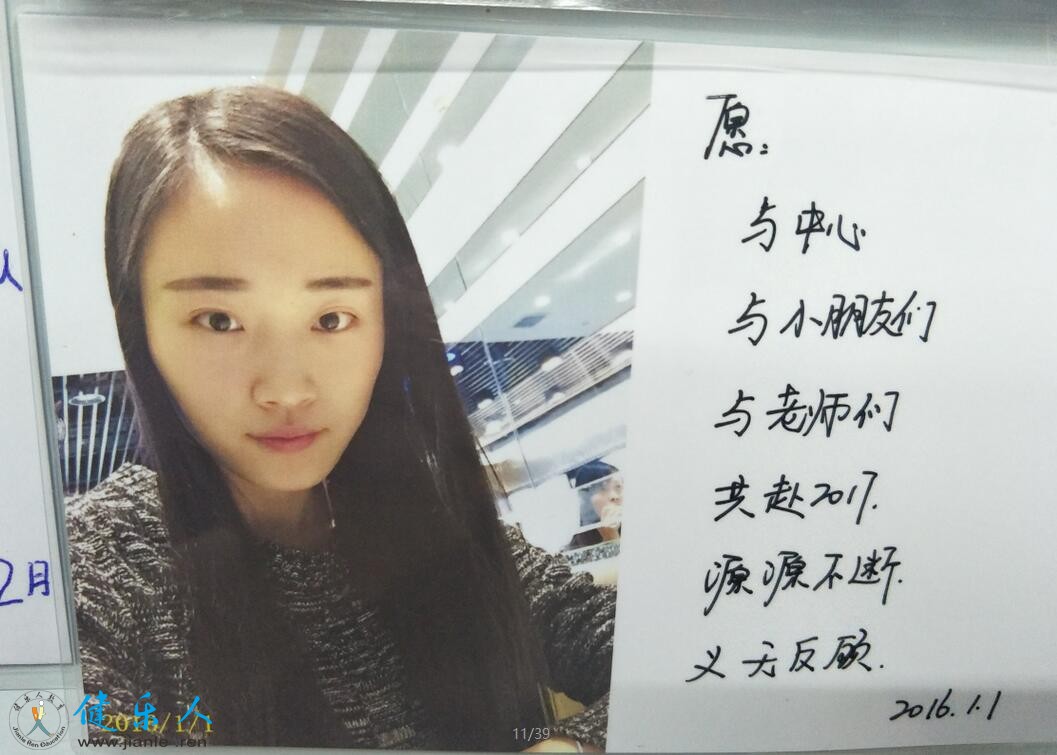 愿：
与中心
与小朋友们
与老师们
共赴2017.
源源不断.
义无反顾.
2016.1.1
人
2月
2016/1/1
健乐人
www.jianle.ren
健乐人教育
Jianle Ren Education
11/39